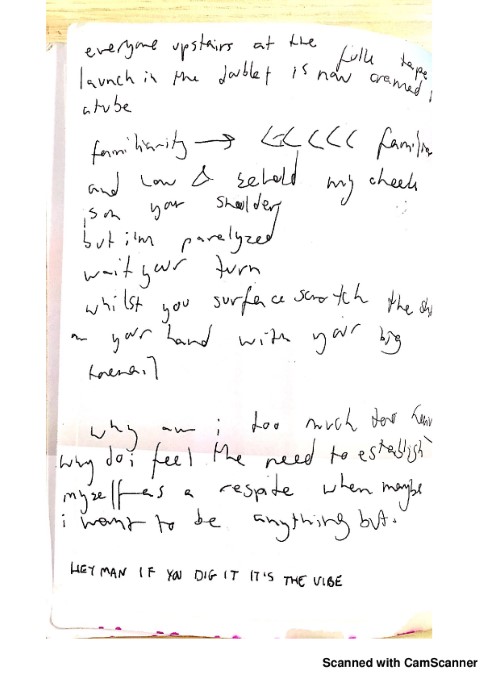 everyone upstairs at the fulls tape
launch in the doublet is now crammed
a tube
familiarity → <<<<<< familiar
and low & behold my cheek
is on your shoulder
but i'm paralyzed
wait your turn
whilst you surface scratch the
on your hand with your big
toenail
why am i too much too
why do i feel the need to establish
myself as a respite when maybe
i want to be anything but.
HEY MAN IF YOU DIG IT IT'S THE VIBE
Scanned with CamScanner